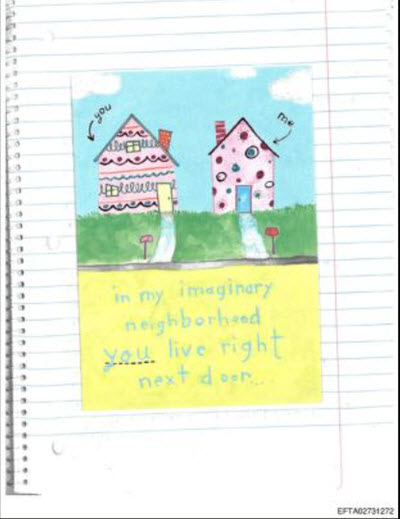 you
me
in my imaginary
neighborhood
you live right
next door...
EFTA02731272